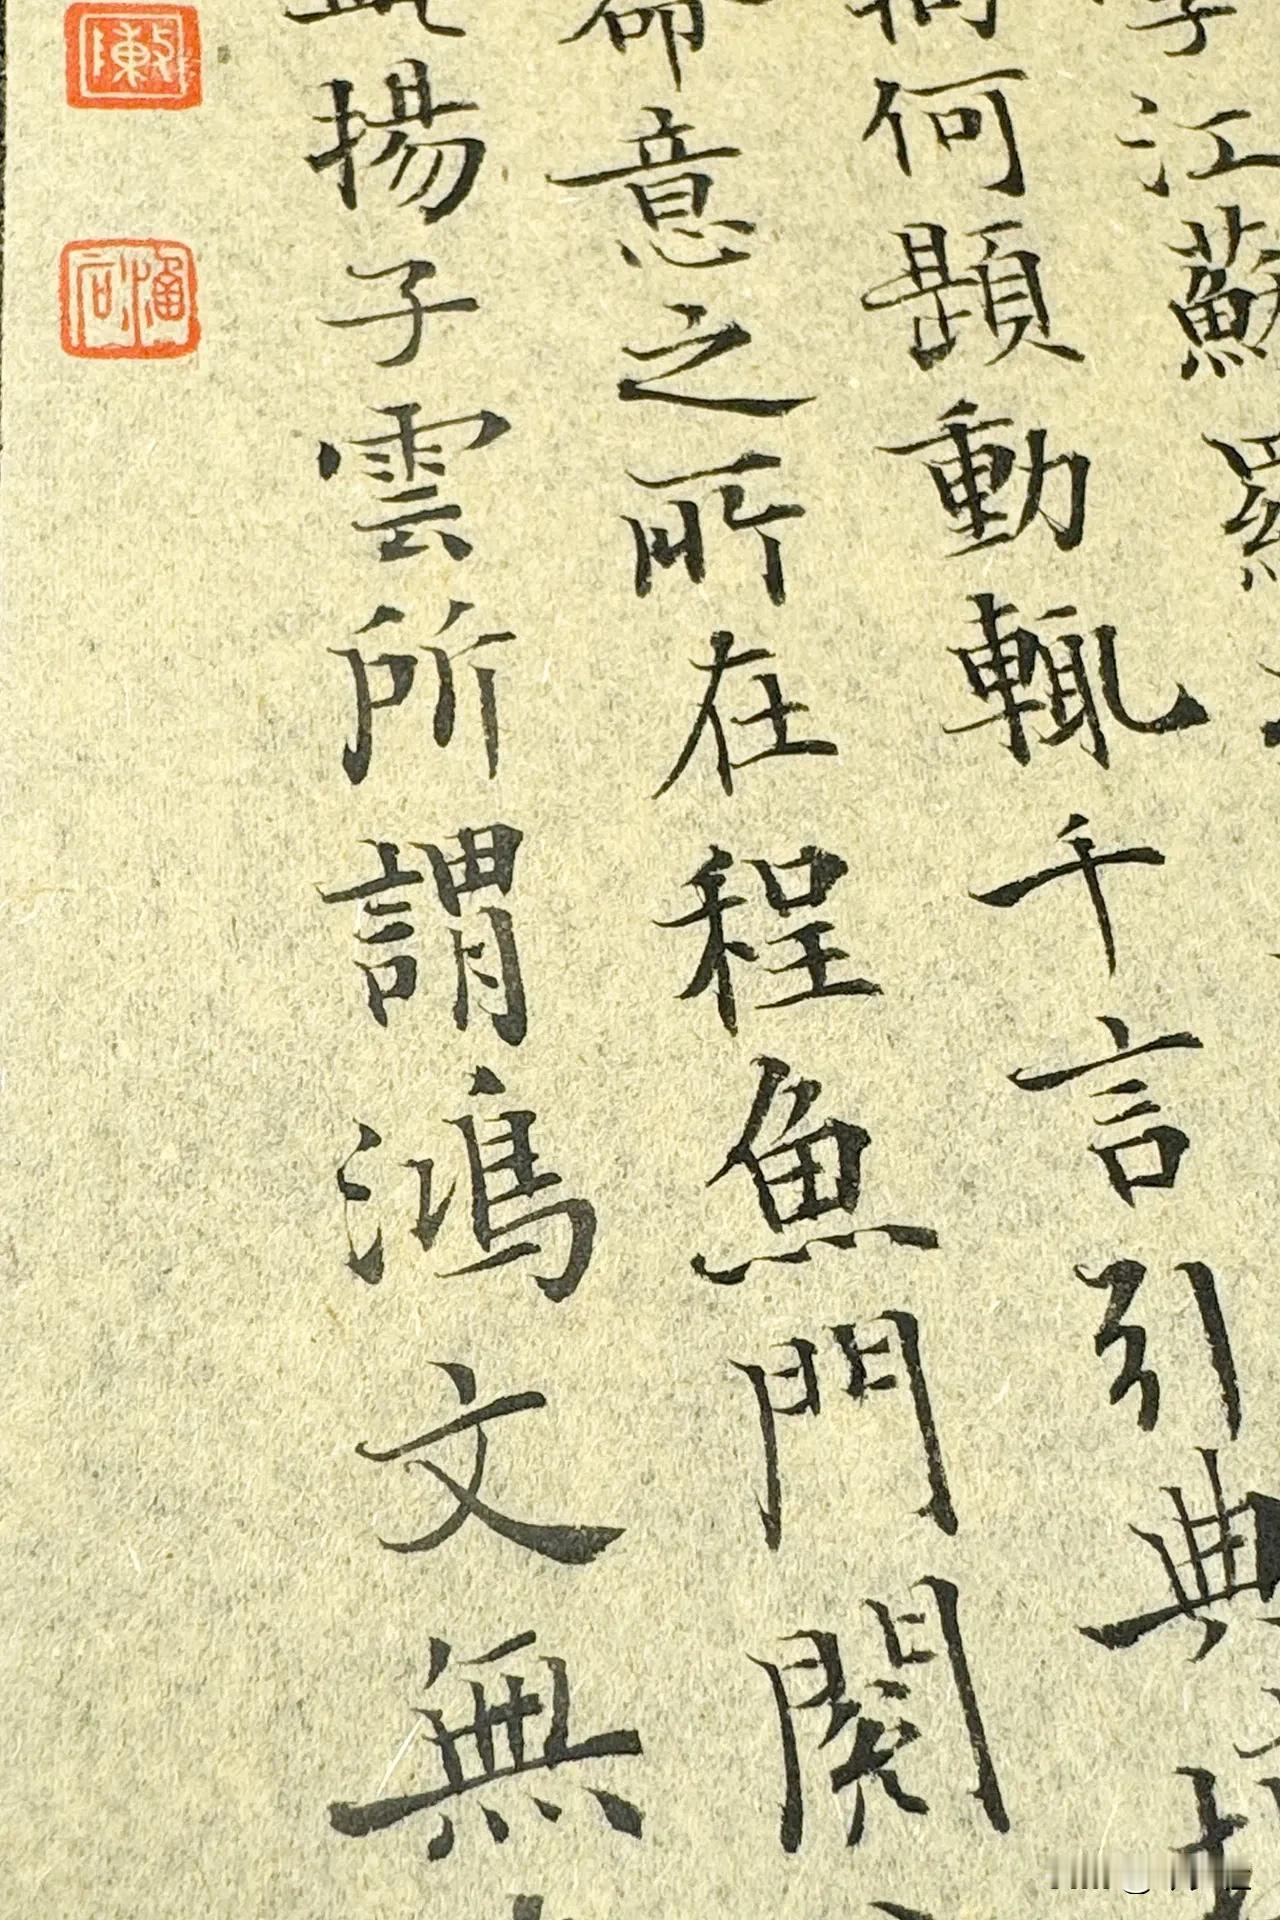 江蘇羅
何題動輒千言引典
命意之所在程魚門閱
揚子雲所謂鴻文無
陳